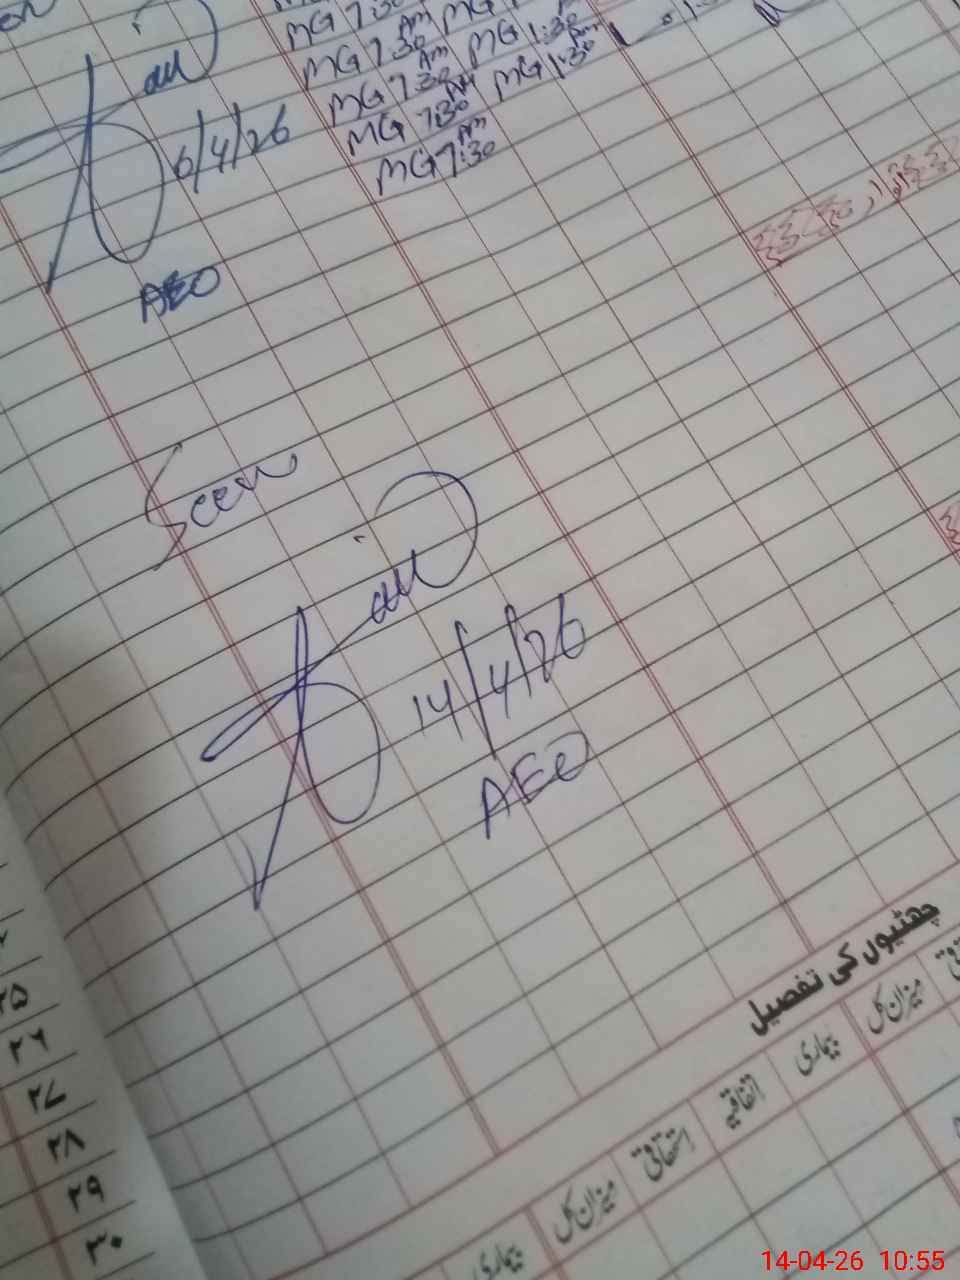 MG 7:30 AM MG
MG 7:30 AM MG 1:30
MG 7:30 AM MG 1:30 Pm
MG 7:30 AM MG 1:30 Pm
MG 7:30 Am
6/4/26
AEO
Seen
14/4/26
AEO
چھٹیوں کی تفصیل
میزان کل
بیماری
اتفاقیہ
استحقاقی
میزان کل
بیماری
۲۵
۲۶
۲۷
۲۸
۲۹
۳۰
14-04-26 10:55